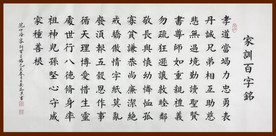 家訓百字銘
孝道當竭力忠勇表
丹誠兄弟互相助慈
悲無過境勤讀聖賢
書尊師如重親禮義
勿疏狂遜讓敦睦鄰
敬長與懷幼憐恤孤
寡貧謙恭尚廉潔絕
戒驕傲情字紙莫亂
廢須報五穀恩作事
循天理博愛惜生靈
處世行八德修身率
祖神兒孫堅心守成
家種善根